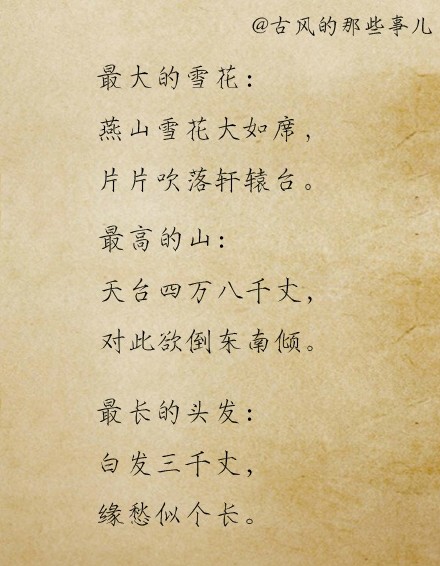 @古风的那些事儿
最大的雪花：
燕山雪花大如席，
片片吹落轩辕台。
最高的山：
天台四万八千丈，
对此欲倒东南倾。
最长的头发：
白发三千丈，
缘愁似个长。